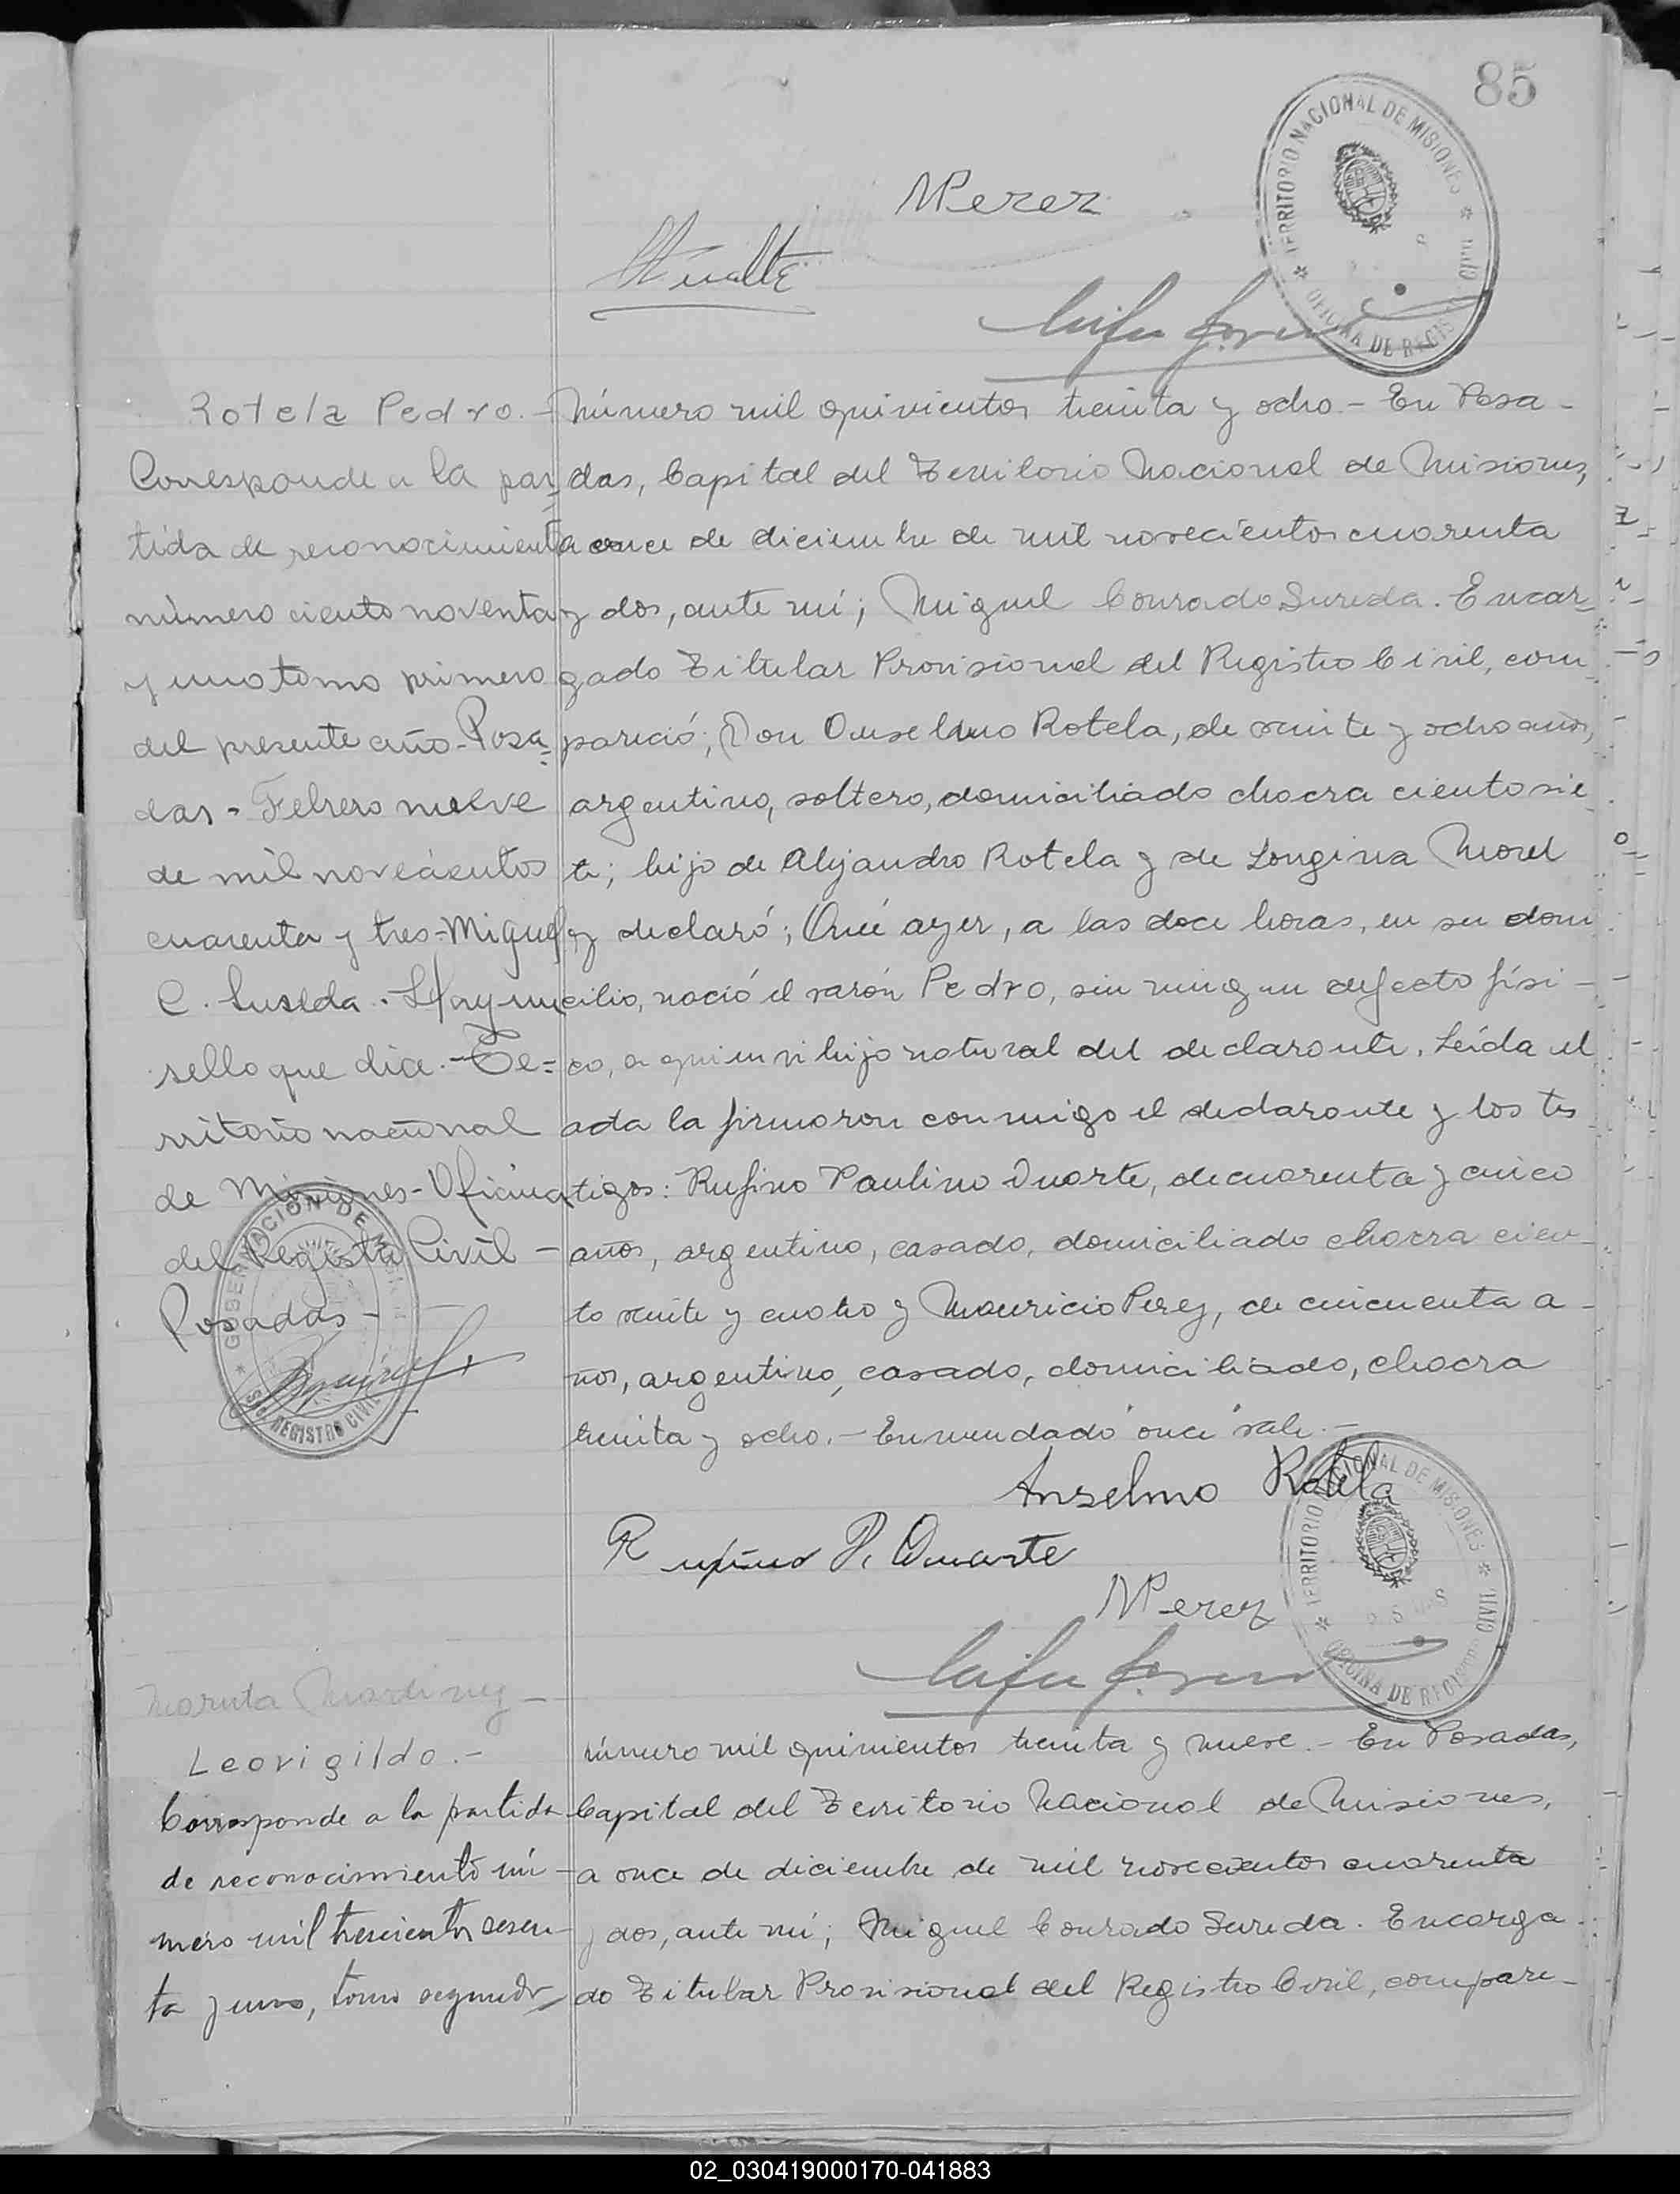 85
TERRITORIO NACIONAL DE MISIONES
OFICINA DE REGISTRO CIVIL
MPerez
Rotela Pedro.-
Corresponde a la par-
tida de reconocimiento
número ciento noventa
y uno tomo primero
del presente año-Posa-
das- Febrero nueve
de mil novecientos
cuarenta y tres-Miguel
C. Sureda. Hay un
sello que dice.-Te-
rritorio nacional
de Misiones-Oficina
del Registro Civil-
Posadas-
GOBERNACION DE MISIONES
REGISTRO CIVIL
Número mil quinientos treinta y ocho.- En Posa-
das, Capital del Territorio Nacional de Misiones,
a once de diciembre de mil novecientos cuarenta
y dos, ante mí; Miguel Conrado Sureda. Encar-
gado Titular Provisional del Registro Civil, com-
pareció; Don Anselmo Rotela, de veinte y ocho años,
argentino, soltero, domiciliado chacra ciento sie-
te; hijo de Alejandro Rotela y de Longina Morel
y declaró; Que ayer, a las doce horas, en su domi
cilio, nació el varón Pedro, sin ningun defecto físi-
co, a quien vi hijo natural del declarante. Leída el
acta la firmaron conmigo el declarante y los tes
tigos: Rufino Paulino Duarte, de cuarenta y cinco
años, argentino, casado, domiciliado chacra cien-
to veinte y cuatro y Mauricio Perez, de cincuenta a-
ños, argentino, casado, domiciliado, chacra
treinta y ocho.- Enmendado "once" vale.-
Anselmo Rotela
Rufino P. Duarte
MPerez
TERRITORIO NACIONAL DE MISIONES
OFICINA DE REGISTRO CIVIL
Martinez-
Leovigildo.-
Corresponde a la partida
de reconocimiento nú-
mero mil trescientos sesen-
ta y uno, tomo segundo
Número mil quinientos treinta y nueve.- En Posadas,
Capital del Territorio Nacional de Misiones,
a once de diciembre de mil novecientos cuarenta
y dos, ante mí; Miguel Conrado Sureda. Encarga-
do Titular Provisional del Registro Civil, compare-
02_030419000170-041883